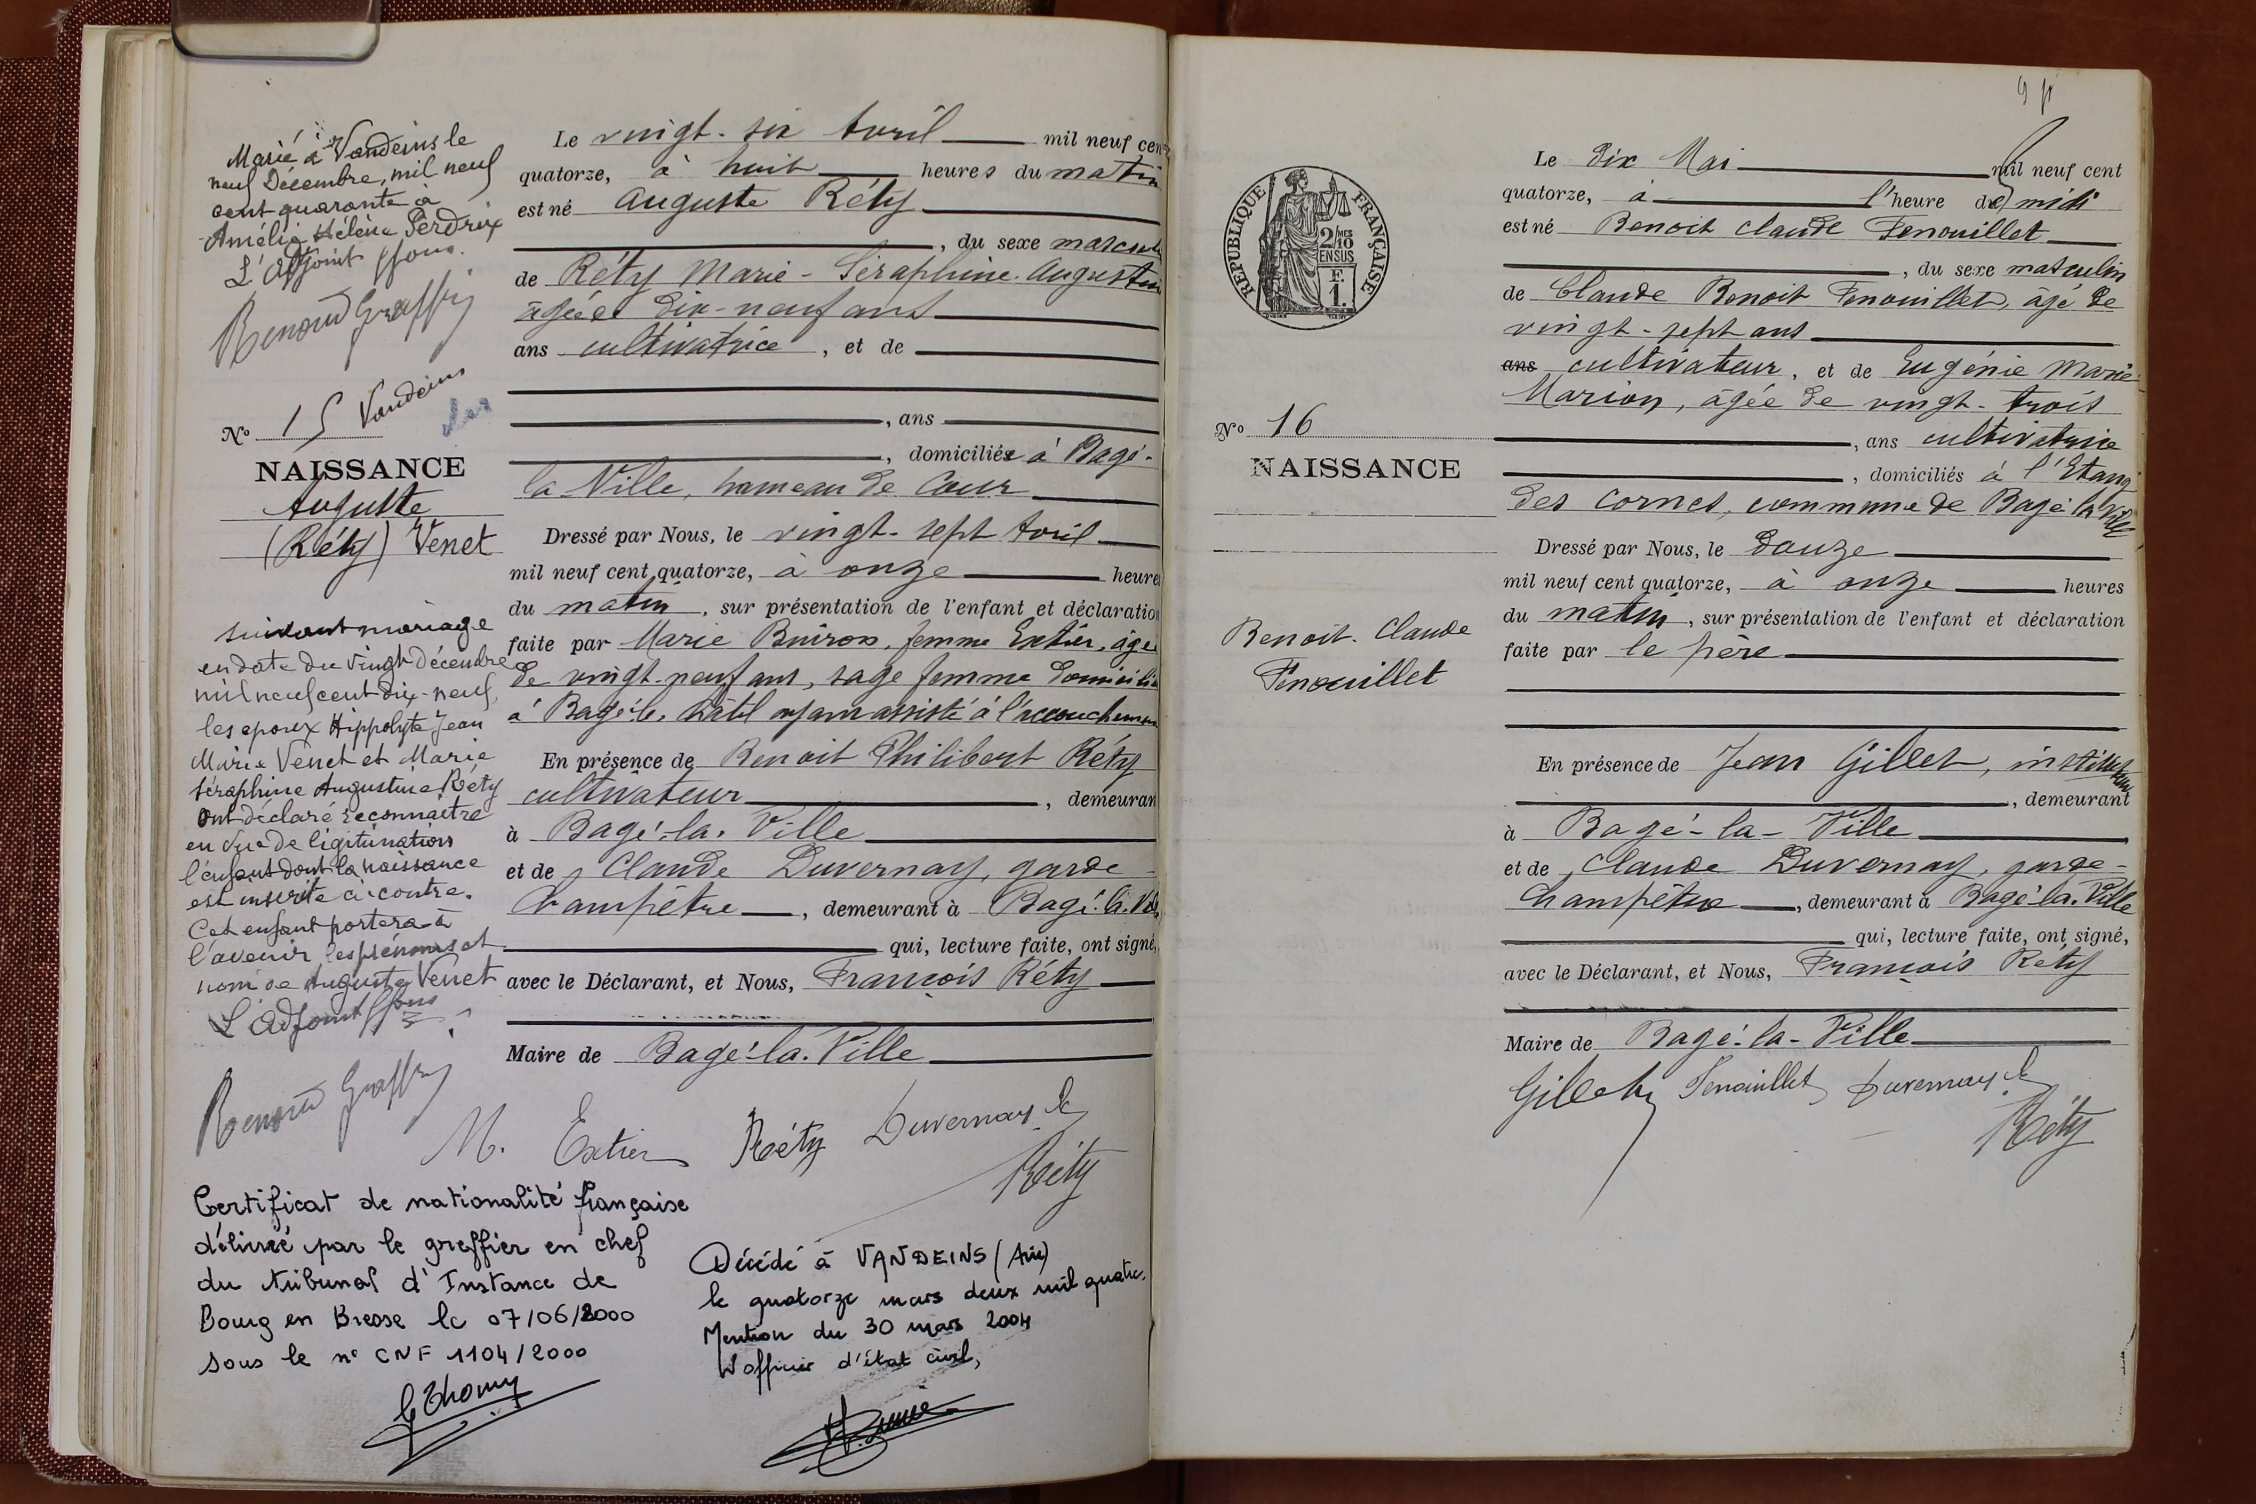 Marié à Vandeins le
neuf Décembre, mil neuf
cent quarante à
Amélie Hélène Perdrix
L'Adjoint
Renoud Graffy
Nº 15 Vandeins
NAISSANCE
Auguste
(Réty) Venet
suivant mariage
en date du vingt Décembre
mil neuf cent dix-neuf,
les epoux Hippolyte Jean
Marie Venet et Marie
Séraphine Augustine Réty
ont déclaré reconnaître
en vue de légitimation
l'enfant dont la naissance
est inscrite ci-contre.
Cet enfant portera à
l'avenir les prénoms et
nom de Auguste Venet
L'Adjoint
Renoud Graffy
Le vingt-six Avril mil neuf cent
quatorze, à huit heures du matin
est né Auguste Réty
, du sexe masculin
de Réty Marie-Séraphine-Augustine
âgée dix-neuf ans
ans cultivatrice, et de
, ans
, domiciliée à Bagé-
la Ville, hameau de Cour
Dressé par Nous, le vingt-sept Avril
mil neuf cent quatorze, à onze heures
du matin, sur présentation de l'enfant et déclaration
faite par Marie Buiron, femme Extier, âgée
de vingt-neuf ans, sage femme domiciliée
à Bagé-le-Châtel ayant assisté à l'accouchement
En présence de Benoit Philibert Réty
cultivateur, demeurant
à Bagé-la-Ville
et de Claude Duvernay, garde-
Champêtre, demeurant à Bagé-la-Ville
qui, lecture faite, ont signé,
avec le Déclarant, et Nous, François Réty
Maire de Bagé-la-Ville
M. Extier Réty Duvernay
Réty
Certificat de nationalité française
délivré par le greffier en chef
du tribunal d'Instance de
Bourg en Bresse le 07/06/2000
sous le nº CNF 1104/2000
Décédé à VANDEINS (Ain)
le quatorze mars deux mil quatre.
Mention du 30 mars 2004
L'officier d'état civil,
RÉPUBLIQUE FRANÇAISE
2/10 MES
EN SUS
E
1.
Nº 16
NAISSANCE
Benoit-Claude
Fenouillet
Le dix Mai mil neuf cent
quatorze, à l'heure de midi
est né Benoit Claude Fenouillet
, du sexe masculin
de Claude Benoit Fenouillet, âgé de
vingt-sept ans
ans cultivateur, et de Eugénie Marie
Marion, âgée de vingt-trois
, ans cultivatrice
, domiciliés à l'Etang
des Cornes, commune de Bagé la Ville
Dressé par Nous, le douze
mil neuf cent quatorze, à onze heures
du matin, sur présentation de l'enfant et déclaration
faite par le père
En présence de Jean Gillet, instituteur
, demeurant
à Bagé-la-Ville
et de Claude Duvernay, garde-
Champêtre, demeurant à Bagé-la-Ville
qui, lecture faite, ont signé,
avec le Déclarant, et Nous, François Réty
Maire de Bagé-la-Ville
Gillet Fenouillet Duvernay
Réty